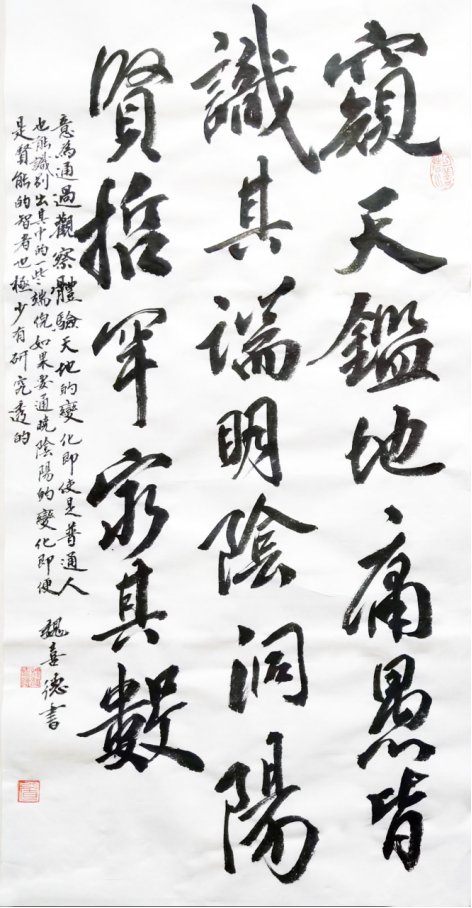 窺天鑑地庸愚皆
識其端明陰洞陽
賢哲罕窮其數
意為通過觀察體驗天地的變化即使是普通人
也能識別出其中的一些端倪如果要通曉陰陽的變化即使
是賢能的智者也極少有研究透的
魏喜德書